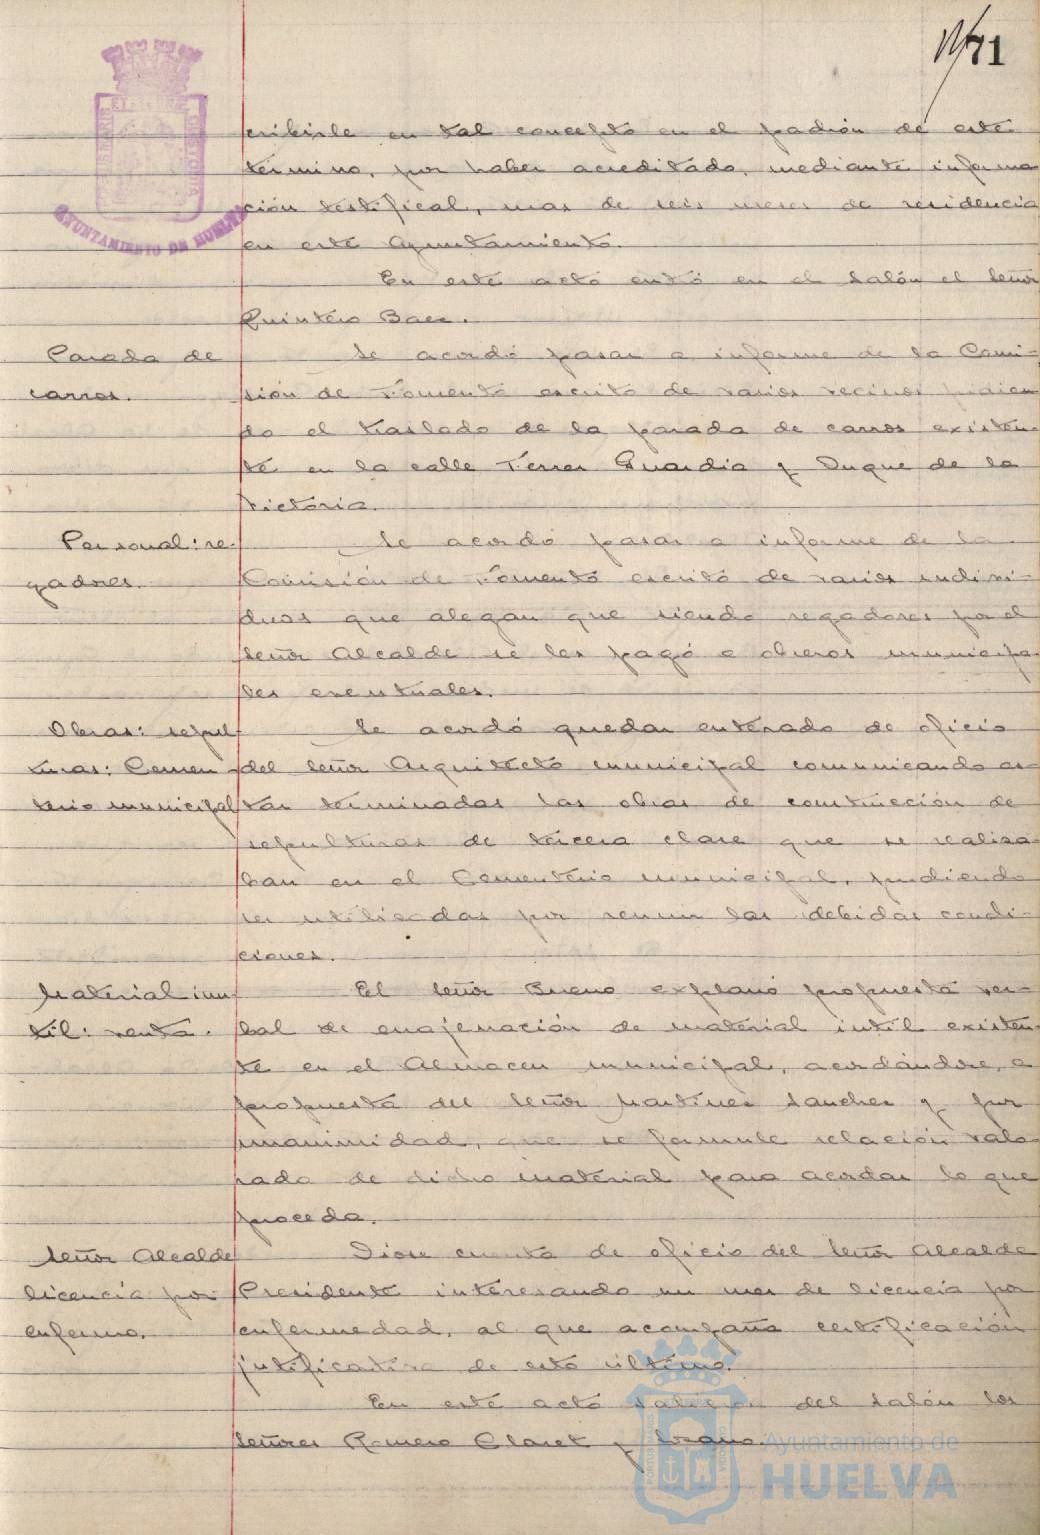 71
AYUNTAMIENTO DE HUELVA
cribirle en tal concepto en el padrón de este
término, por haber acreditado, mediante informa
ción testifical, mas de seis meses de residencia
en este Ayuntamiento.
En este acto entró en el salón el Señor
Quintero Baez.
Parada de
carros.
Se acordó pasar a informe de la Comi-
sión de Fomento escrito de varios vecinos pidien
do el traslado de la parada de carros existen-
te en la calle Ferrer Guardia y Duque de la
Victoria.
Personal: re-
gadores.
Se acordó pasar a informe de la
Comisión de Fomento escrito de varios indivi-
duos que alegan que siendo regadores por el
Señor Alcalde se les pagó a obreros municipa
les eventuales.
Obras: sepul
turas: Cemen
terio municipal
Se acordó quedar enterado de oficio
del Señor Arquitecto municipal comunicando es-
tar terminadas las obras de construcción de
sepulturas de tercera clase que se realiza-
ban en el Cementerio municipal, pudiendo
ser utilizadas por reunir las debidas condi-
ciones.
Material inu
til: venta.
El Señor Bueno explanó propuesta ver-
bal de enajenación de material intil existen-
te en el Almacen municipal, acordándose, a
propuesta del Señor Martinez Sanchez y por
unanimidad, que se formule relación valo
rada de dicho material para acordar lo que
proceda.
Señor Alcalde
licencia por
enfermo.
Diose cuenta de oficio del Señor Alcalde
Presidente interesando un mes de licencia por
enfermedad, al que acompaña certificación
justificativa de esto último.
En este acto salieron del salón los
Señores Romero Claret y Lozano.
Ayuntamiento de
HUELVA